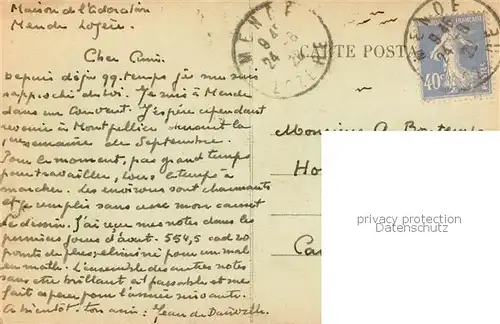 Maison de l'Adoration
Mende Lozère
Cher Ami.
Depuis déjà qq. temps je me suis
rapproché de toi. Je suis à Mende
dans un Couvent. J'espère cependant
revenir à Montpellier durant la
1ère semaine de Septembre.
Pour le moment, pas grand temps
pour travailler, tous le temps à
marcher. Les environs sont charmants
et je remplis sans cesse mon carnet
de dessin. J'ai reçu mes notes dans les
premiers jours d'août. 554,5 cad 20
points de plus, éliminé pour un mal
en math. L'ensemble des autres notes
sans être brillant est passable et me
fait espérer pour l'année suivante.
A bientôt. ton ami: Jean de
CARTE POSTA
MENDE
LOZERE
MENDE
40c
Monsieur A. Bo
Ho
Ca
privacy protection
Datenschutz